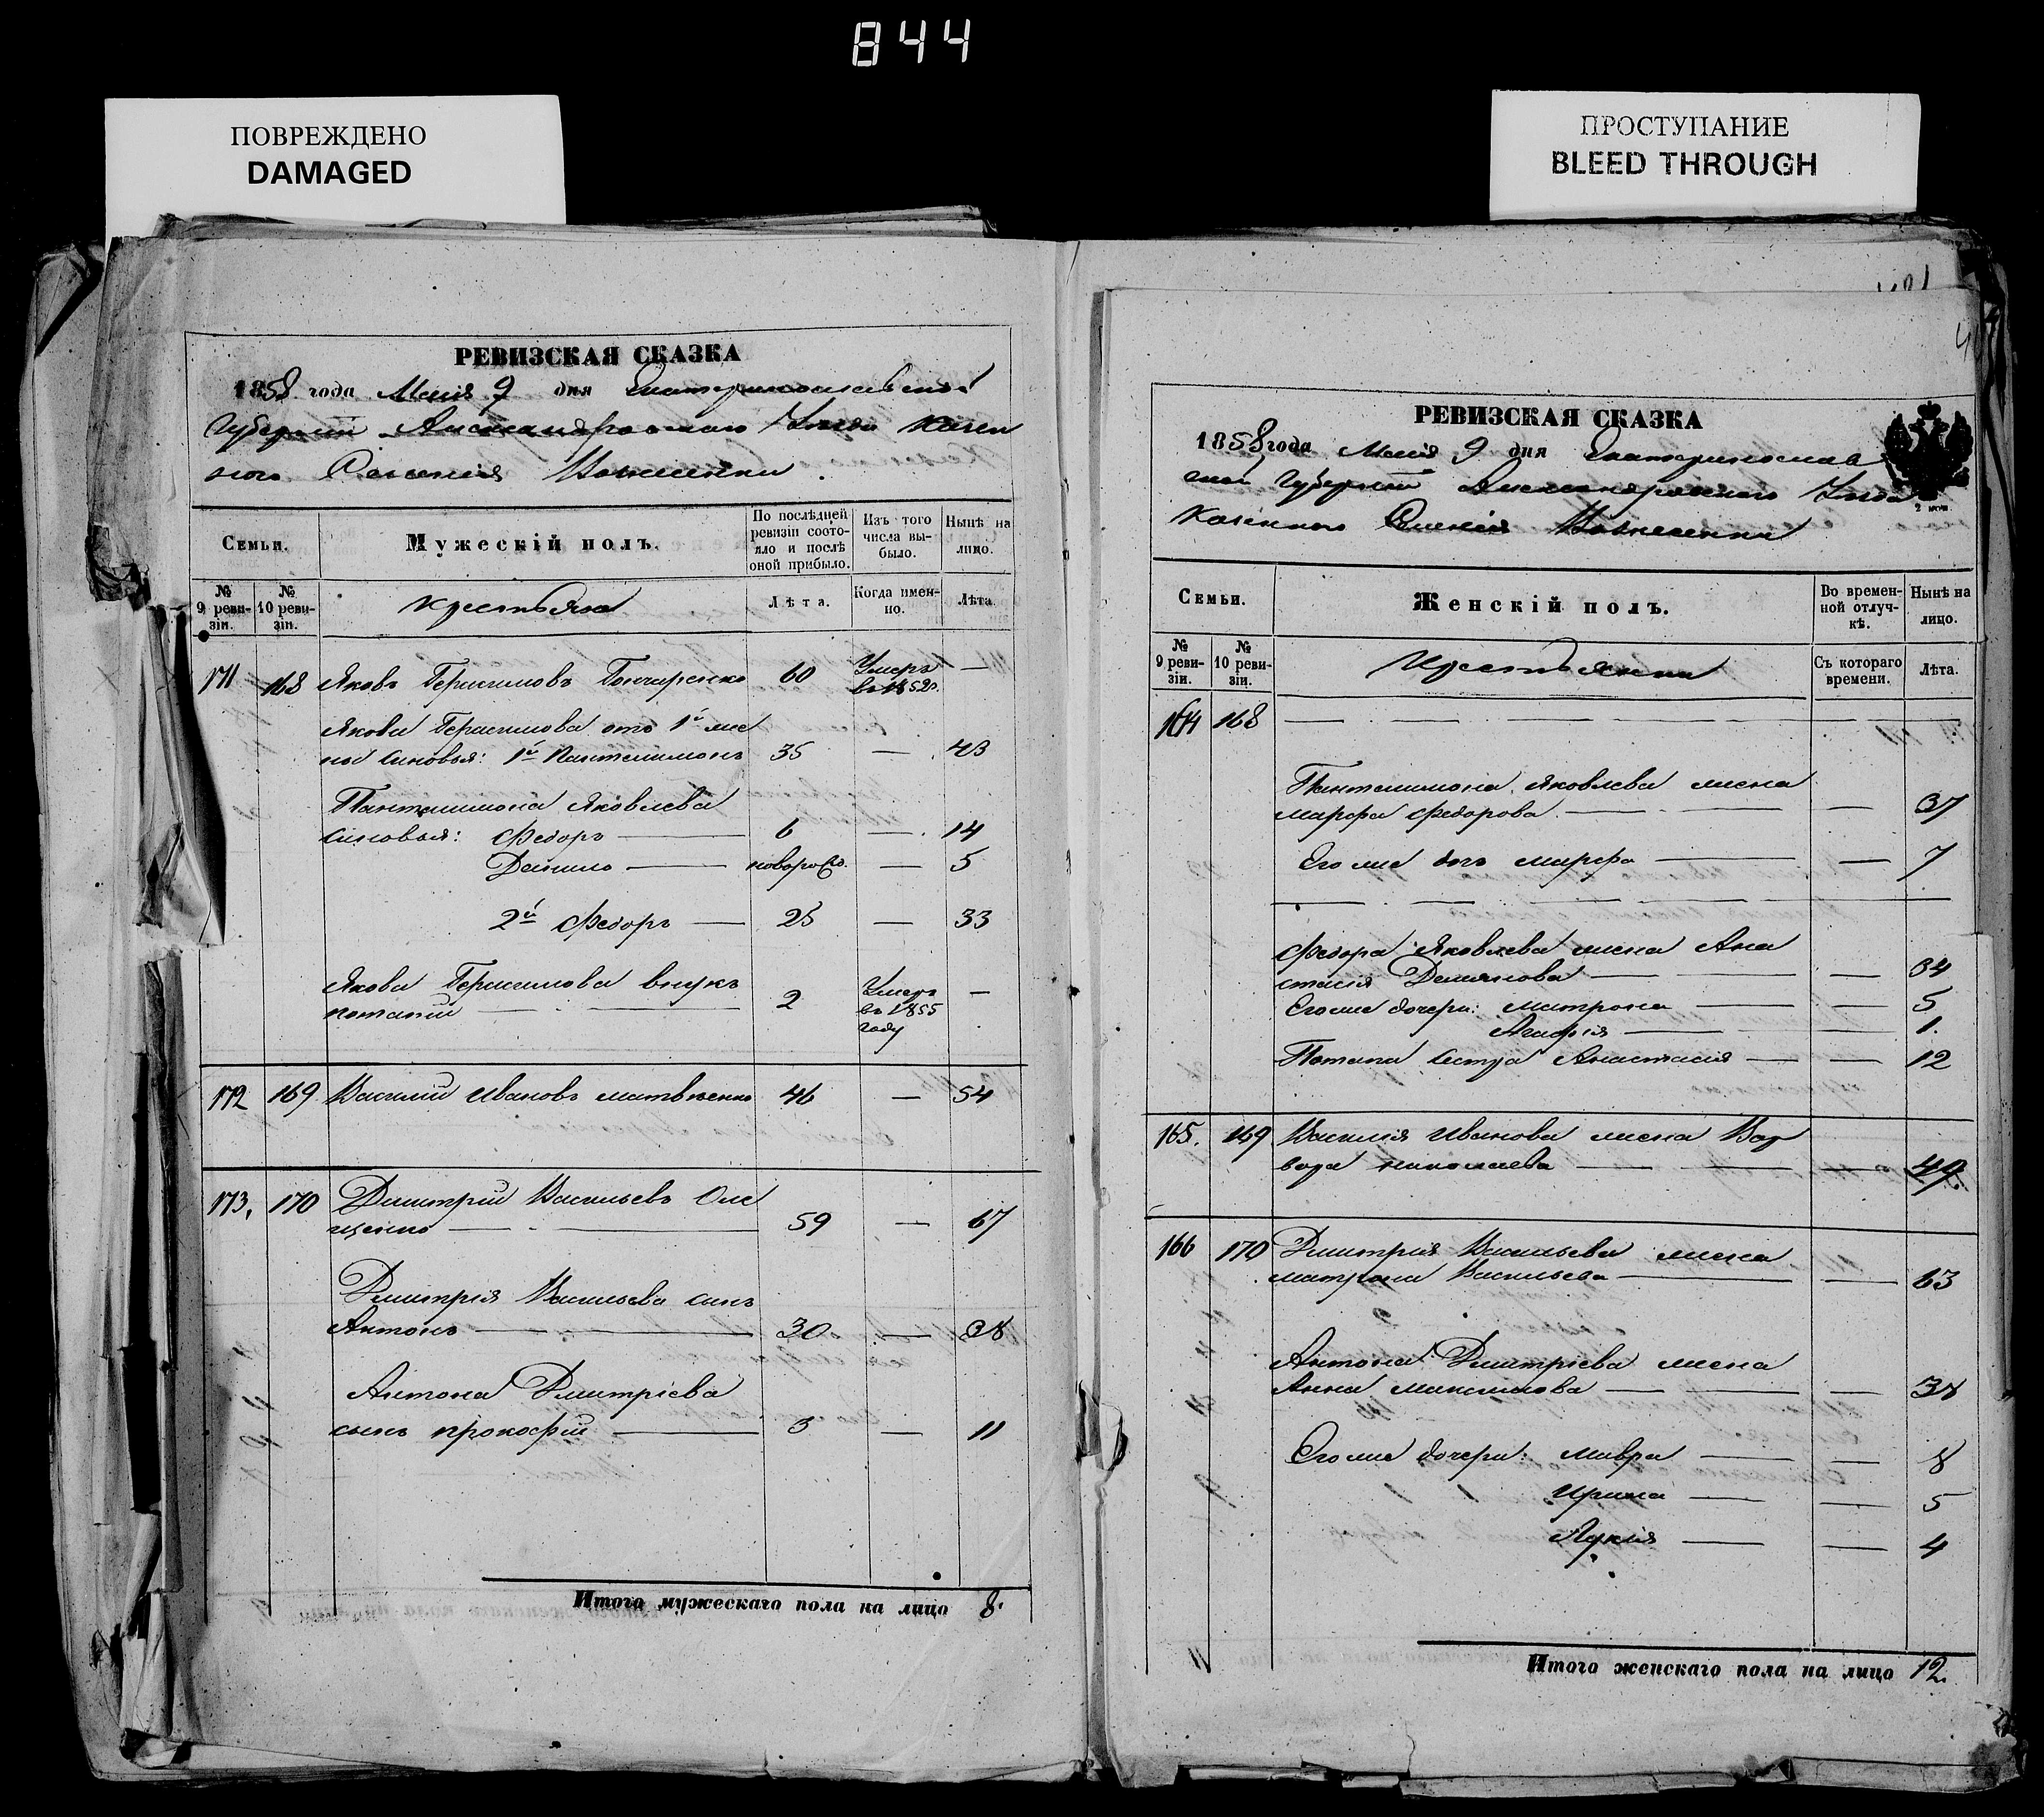 844
ПОВРЕЖДЕНО
DAMAGED
ПРОСТУПАНИЕ
BLEED THROUGH
РЕВИЗСКАЯ СКАЗКА
1858 года Маія 9 дня Екатеринославской
Губерніи Александровскаго Уезда Казен
наго Селенія Вознесенки.
Семьи.
Мужескій полъ.
По послѣдней ревизіи состояло и послѣ оной прибыло.
Изъ того числа выбыло.
Нынѣ на лицо.
№ 9 ревизіи.
№ 10 ревизіи.
Крестьяне
Лѣта.
Когда именно.
Лѣта.
171 168 Яковъ Герасимовъ Гончаренко 60 Умеръ въ 1852г. —
Якова Герасимова отъ 1й же
ны сыновья: 1й Пантелимонъ 35 — 43
Пантелимона Яковлева
сыновья: Федоръ — 6 — 14
Данило — новорож. — 5
2й Федоръ — 25 — 33
Якова Герасимова внукъ
Потапій — 2 Умеръ въ 1855 году —
172 169 Василий Ивановъ Матвѣенко 46 — 54
173, 170 Дмитрий Васильевъ Оме
щенко — 59 — 67
Дмитрія Васильева сынъ
Антонъ — 30 — 38
Антона Дмитріева
сынъ Прокофий — 3 — 11
Итого мужескаго пола на лицо 8.
РЕВИЗСКАЯ СКАЗКА
1858 года Маія 9 дня Екатеринослав
ской Губерніи Александровскаго Уезда
Казеннаго Селенія Вознесенки
Семьи.
Женскій полъ.
Во временной отлучкѣ.
Нынѣ на лицо.
№ 9 ревизіи.
№ 10 ревизіи.
Крестьянки
Съ котораго времени.
Лѣта.
164 168 —
Пантелимона Яковлева жена
Марфа Федорова — — 37
Его же дочь Марфа — — 7
Федора Яковлева жена Ана
стасія Демянова — — 34
Его же дочери: Матрона — — 5
Агафія — — 1.
Потапа сестра Анастасія — — 12
165. 169 Василія Иванова жена Вар
вара Николаева — — 49.
166 170 Дмитрія Васильева жена
Матрона Васильева — — 63
Антона Дмитріева жена
Анна Максимова — — 38
Его же дочери: Мавра — — 8
Ирина — — 5
Лукія — — 4
Итого женскаго пола на лицо 12.